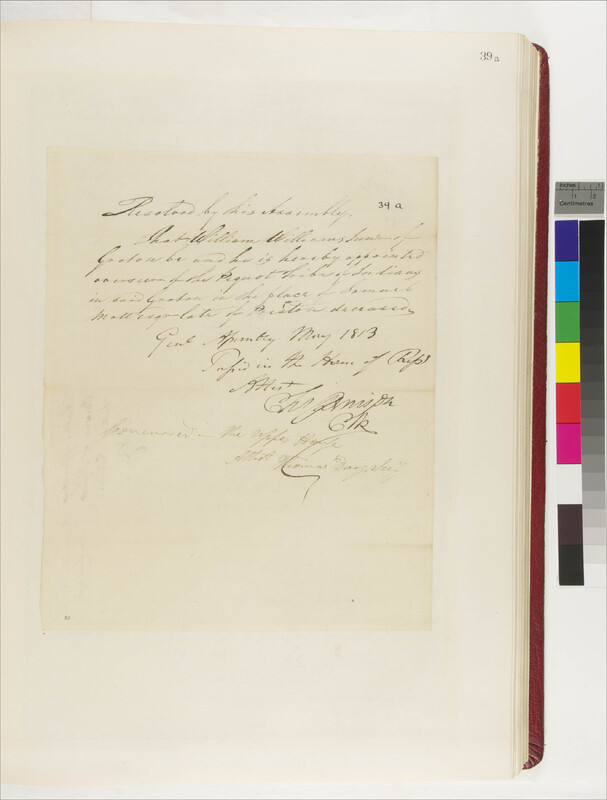 39a
39 a
Resolved by this Assembly,
That William Williams Junr of
Groton be and he is hereby appointed
overseer of the Pequot tribe of Indians
in said Groton in the place of Samuel
Mott esqr late of Preston deceased
Genl Assembly May 1813
Passd in the House of Reps
Attest
Chs Denison
Clk
Concurred in the Upper House
Attest Thomas Day, Secy
inches 1 2
Centimetres